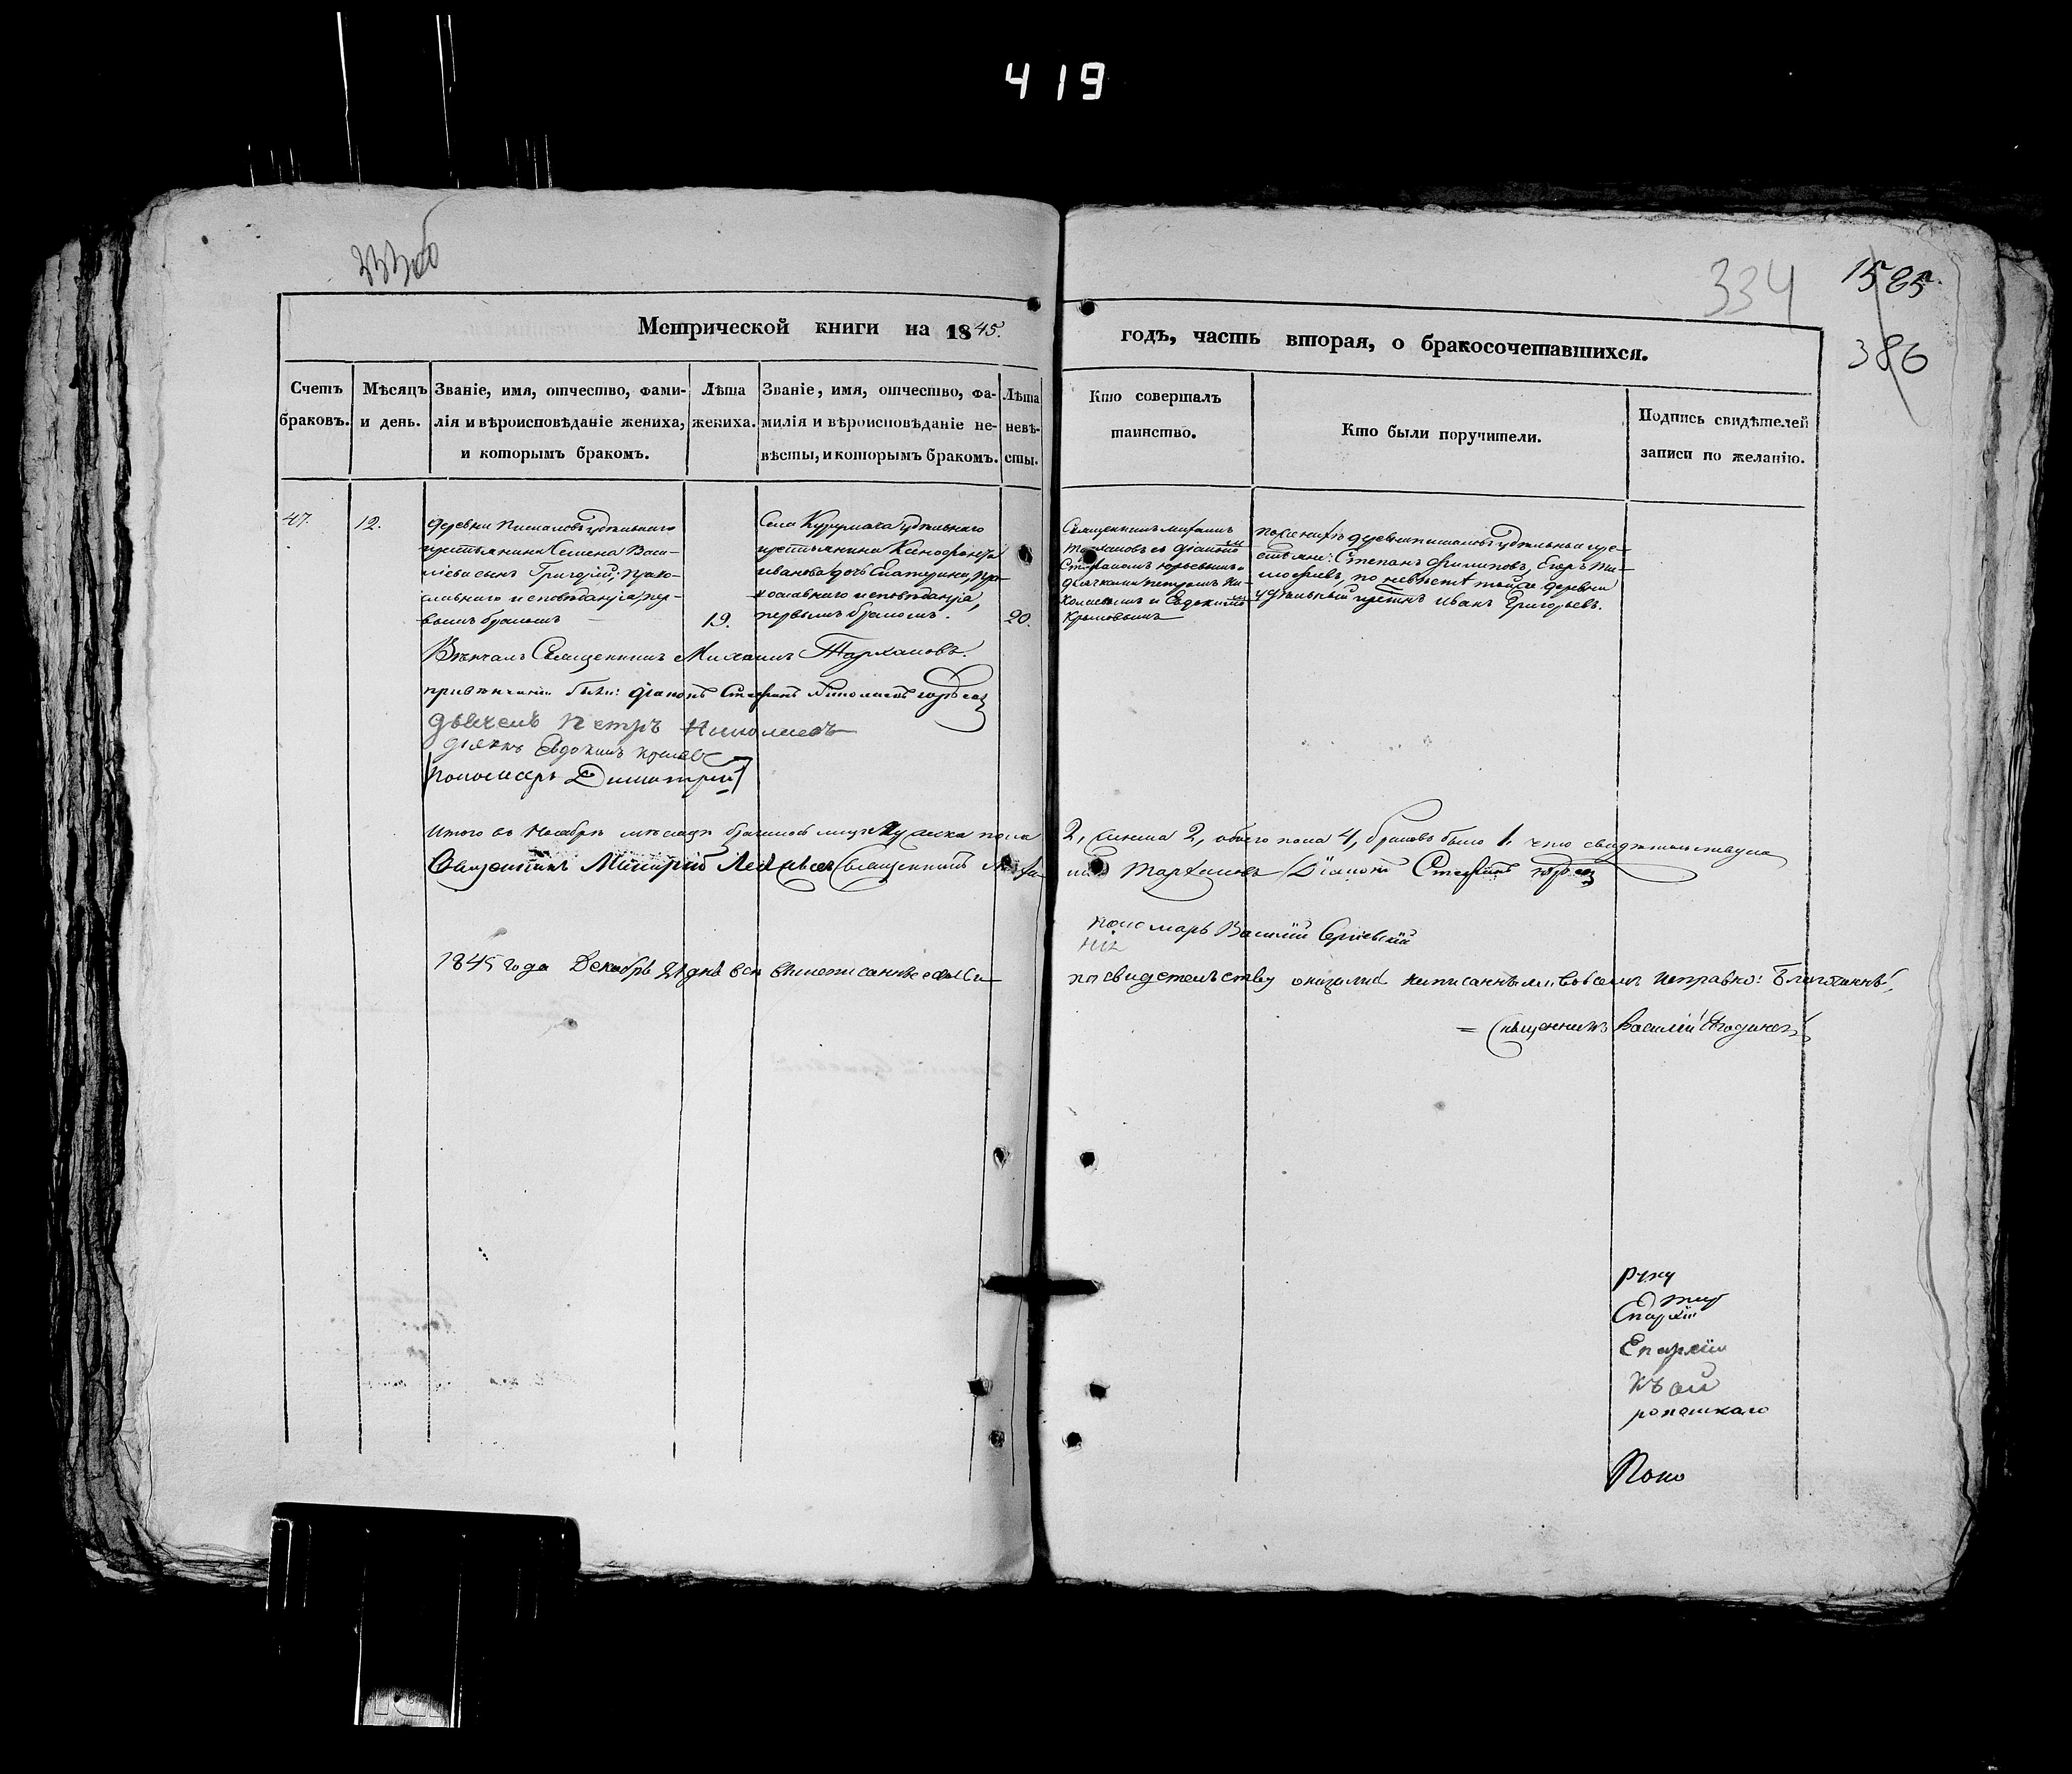 419
333об
334
1585.
386
Метрической книги на 1845.
годъ, часть вторая, о бракосочетавшихся.
Счетъ браковъ.
Мѣсяцъ и день.
Званіе, имя, отчество, фами-
лія и вѣроисповѣданіе жениха,
и которымъ бракомъ.
Лѣта
жениха.
Званіе, имя, отчество, фа-
милія и вѣроисповѣданіе не-
вѣсты, и которымъ бракомъ.
Лѣта
невѣ-
сты.
Кто совершалъ
таинство.
Кто были поручители.
Подпись свидѣтелей
записи по желанію.
47.
12.
деревни удѣльнаго
крестьянина Семена Васи-
льева сынъ Григорій, право-
славнаго исповѣданія, пер-
вымъ бракомъ
19.
Села Курумоча удѣльнаго
крестьянина Ксенофонта
Иванова дочь Екатерина, пра-
вославнаго исповѣданія,
первымъ бракомъ.
20.
Священникъ Михаилъ
Тархановъ съ діакономъ
Стефаномъ Юрьевымъ
дьячками Петромъ Ни-
колаевымъ и Евдокимомъ
Крыловымъ
по женихѣ деревни удѣльные кре-
стьяне: Степанъ Филиповъ, Егоръ Ти-
мофеевъ, по невѣстѣ той же деревни
удѣльный крестнъ Иванъ Григорьевъ.
Вѣнчалъ Священникъ Михаилъ Тархановъ.
при вѣнчаніи были: діаконъ Стефанъ
дьячекъ Петръ Николаевъ
дьячкъ Евдокимъ Крыловъ
пономарь Димитрий
Итого въ Ноябрѣ мѣсяцѣ брачился лицъ мужеска пола
2, женска 2, обоего пола 4, браковъ было 1. что свидѣтельствуемъ
Священникъ Священникъ Михаи-
илъ Тархановъ Діаконъ Стефанъ
пономарь Василій Сергіевскій
1845 года Декабря дня все вышеписанное
по свидетельству оказалось написаннымъ во всемъ исправно: Благочинный
= Священникъ Василій Ягодинскій
руку
Епархіи
Епархіи
къ ой
Поно